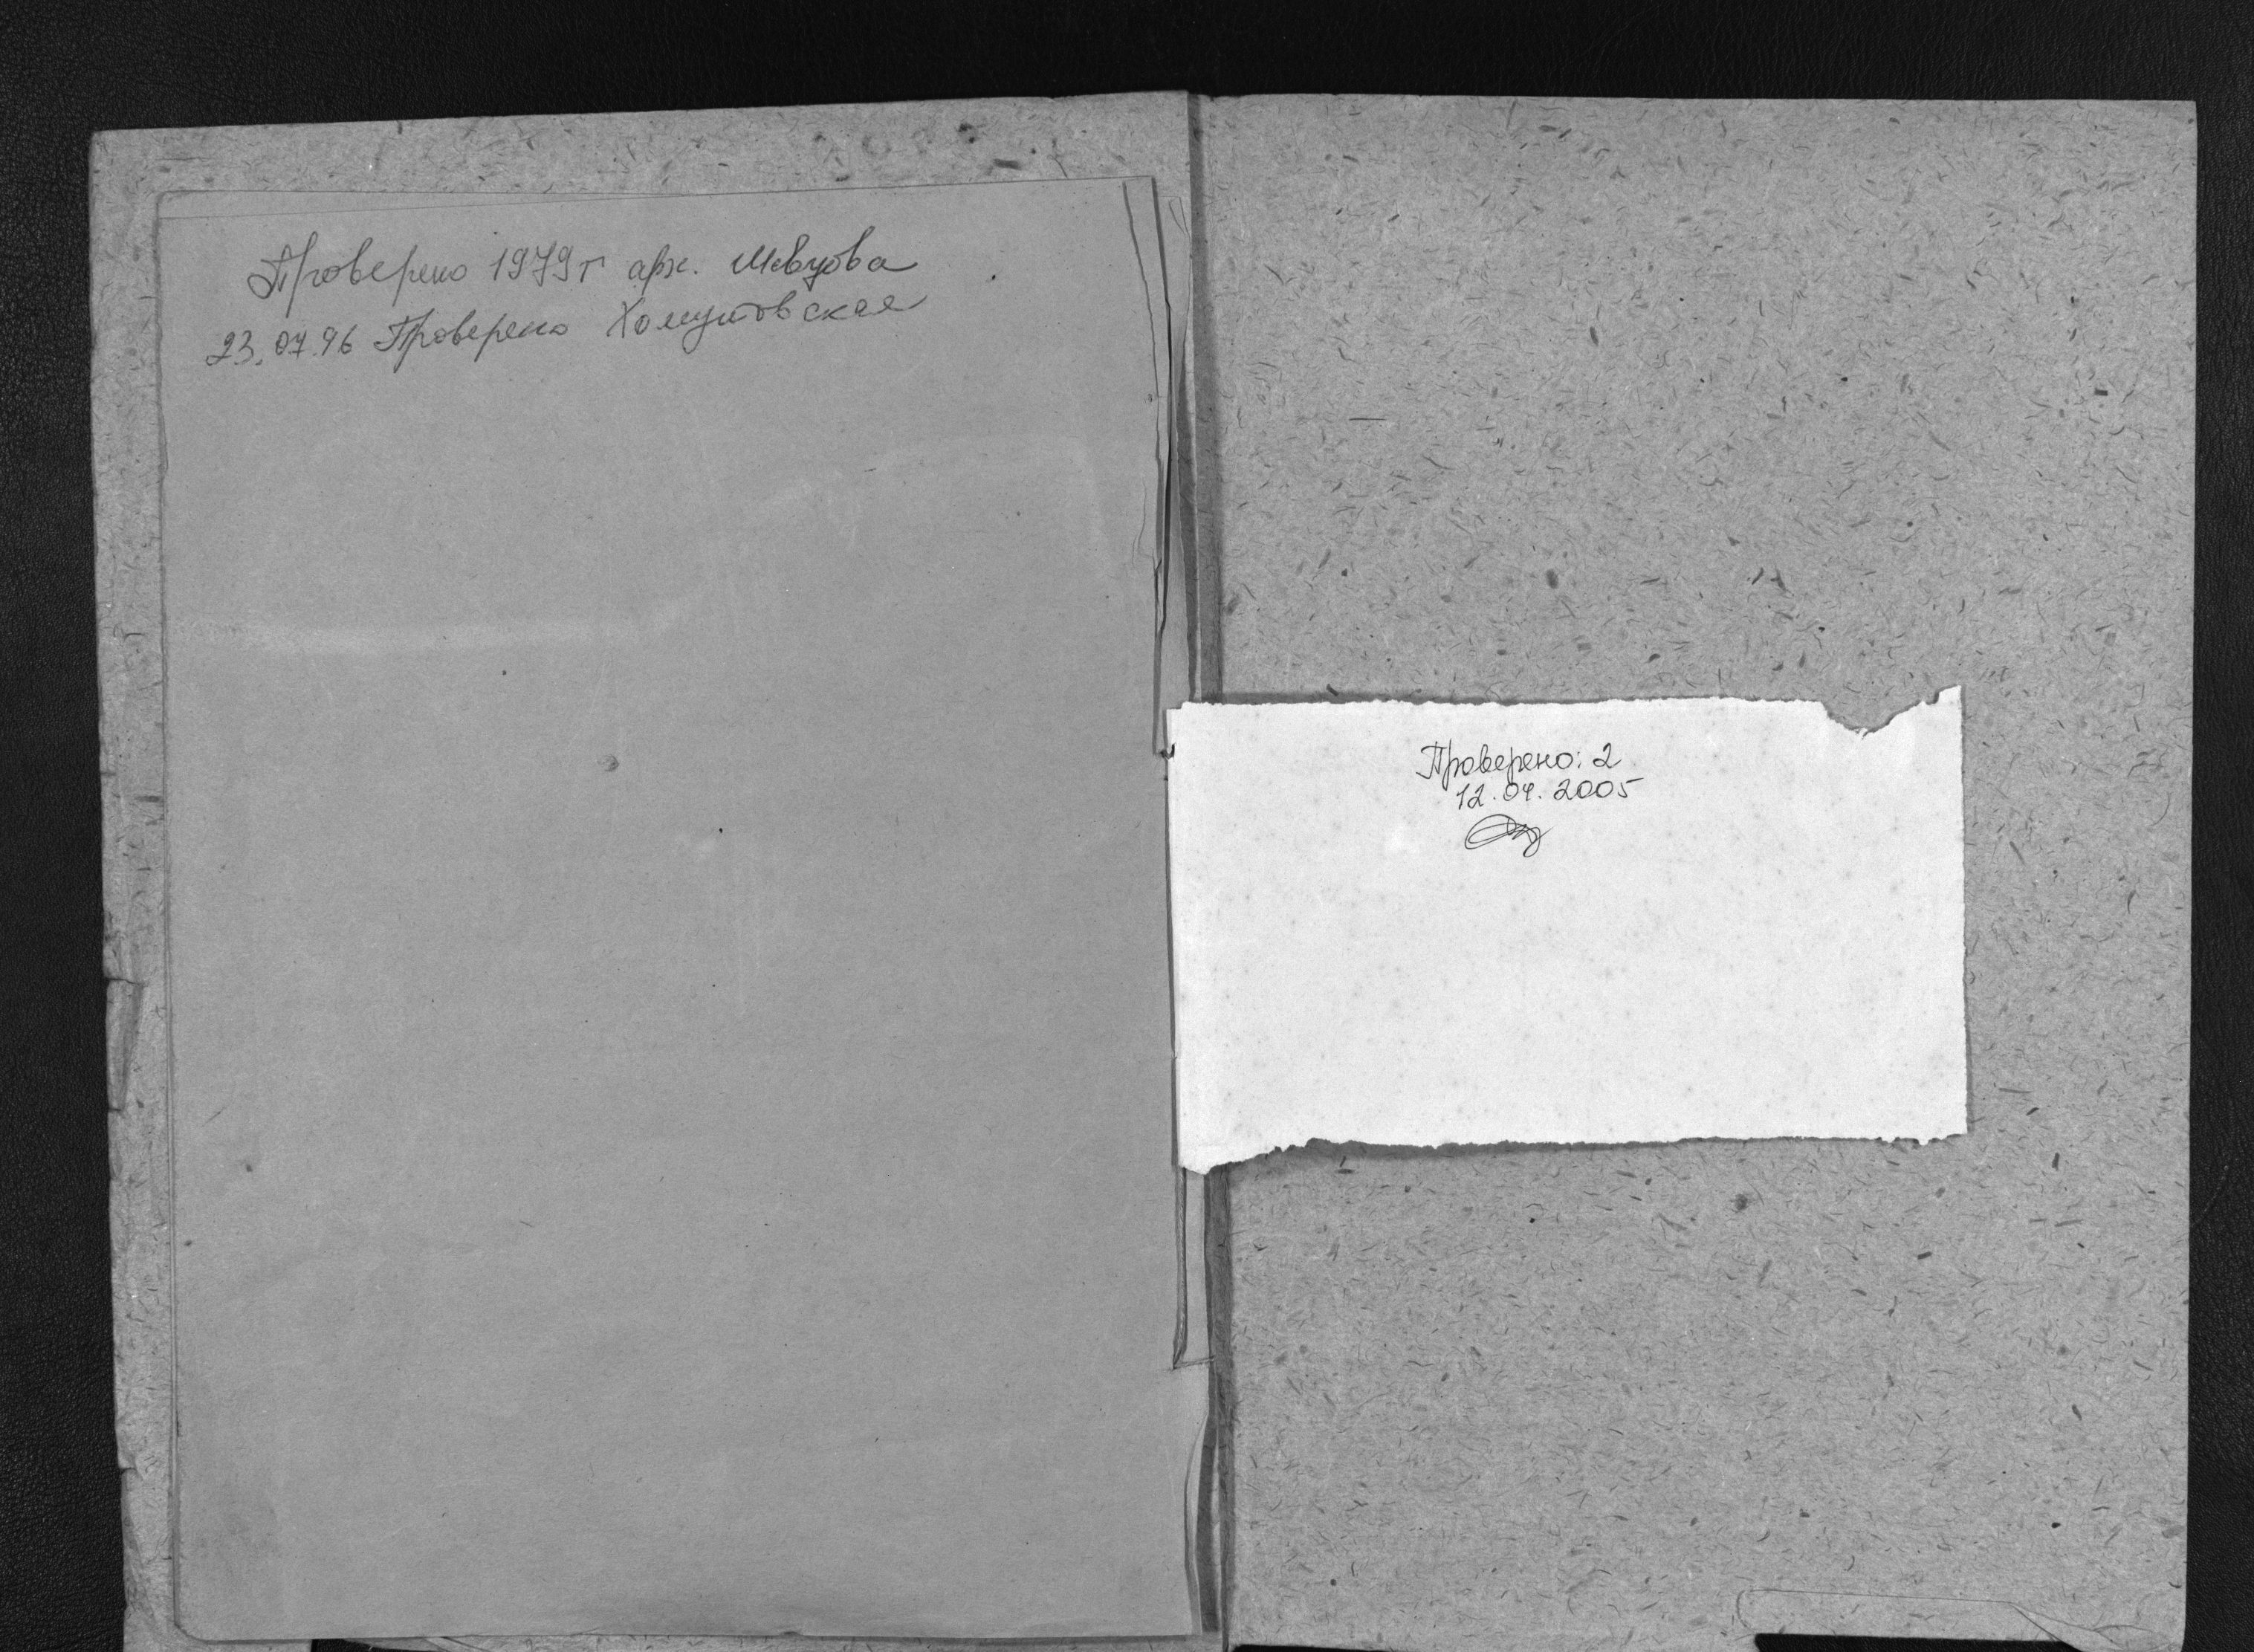 Проверено 1979 г арх. Шевцова
23.07.96 Проверено Хомутовская
Проверено: 2
12.04.2005